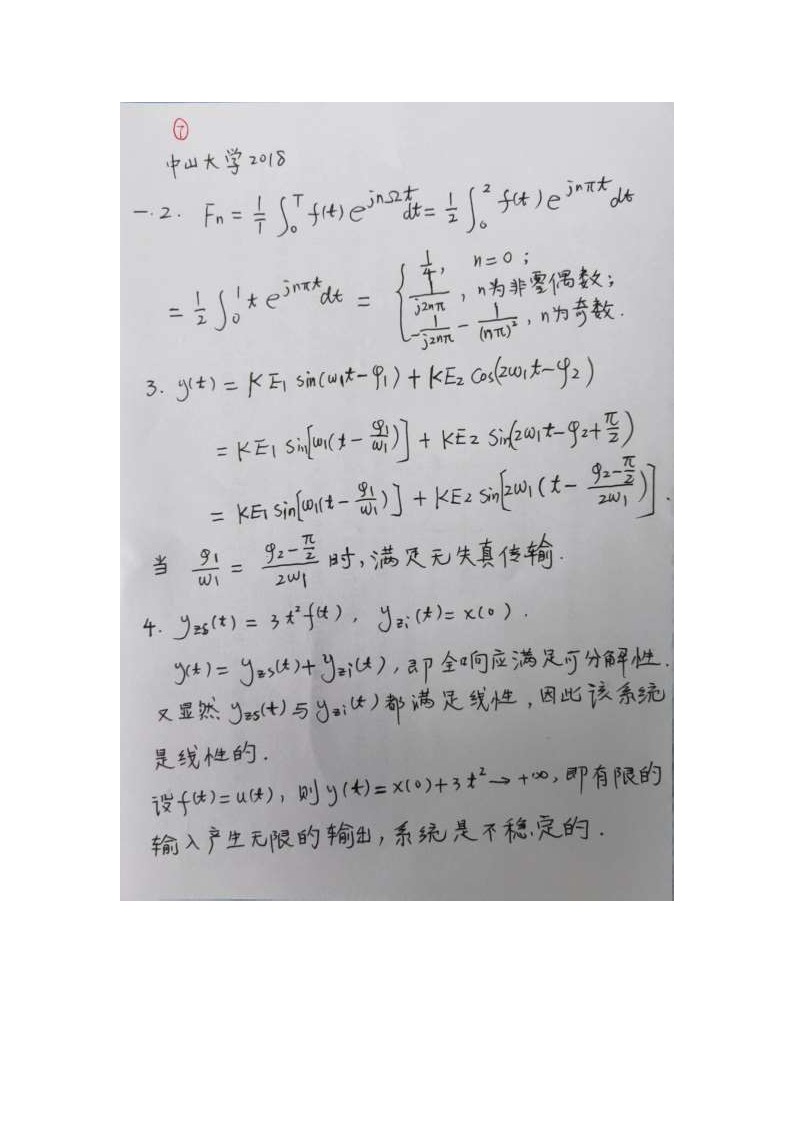 ⑦
中山大学2018
一.2. Fn = 1/T ∫₀ᵀ f(t) e^{jnΩt} dt = 1/2 ∫₀² f(t) e^{jnπt} dt
= 1/2 ∫₀¹ t e^{jnπt} dt = { 1/4, n=0;
1/(j2nπ), n为非零偶数;
-1/(j2nπ) - 1/(nπ)², n为奇数.
3. y(t) = KE₁ sin(ω₁t-φ₁) + KE₂ cos(2ω₁t-φ₂)
= KE₁ sin[ω₁(t - φ₁/ω₁)] + KE₂ sin(2ω₁t-φ₂+π/2)
= KE₁ sin[ω₁(t - φ₁/ω₁)] + KE₂ sin[2ω₁(t - (φ₂-π/2)/(2ω₁))].
当 φ₁/ω₁ = (φ₂-π/2)/(2ω₁) 时,满足无失真传输.
4. y_{zs}(t) = 3t²f(t), y_{zi}(t) = x(0).
y(t) = y_{zs}(t) + y_{zi}(t), 即全响应满足可分解性.
又显然 y_{zs}(t) 与 y_{zi}(t) 都满足线性,因此该系统
是线性的.
设f(t)=u(t), 则y(t)=x(0)+3t²→+∞, 即有限的
输入产生无限的输出,系统是不稳定的.